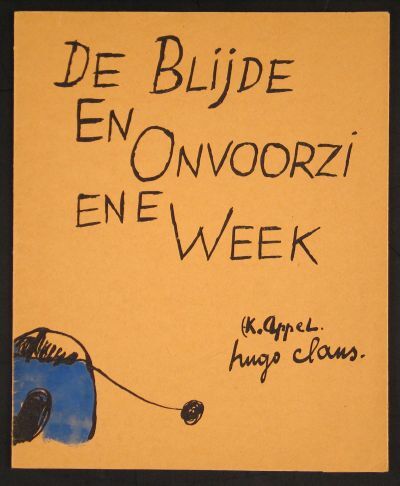 DE BLIJDE
EN
ONVOORZI
ENE
WEEK
(K. Appel.
hugo claus.